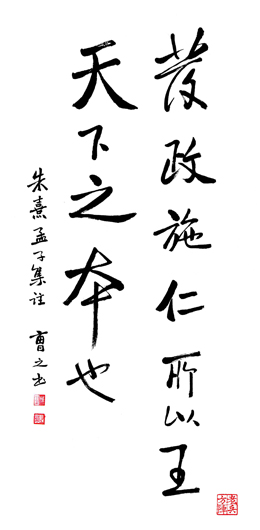 發政施仁所以王
天下之本也
朱熹孟子集註 曹之也